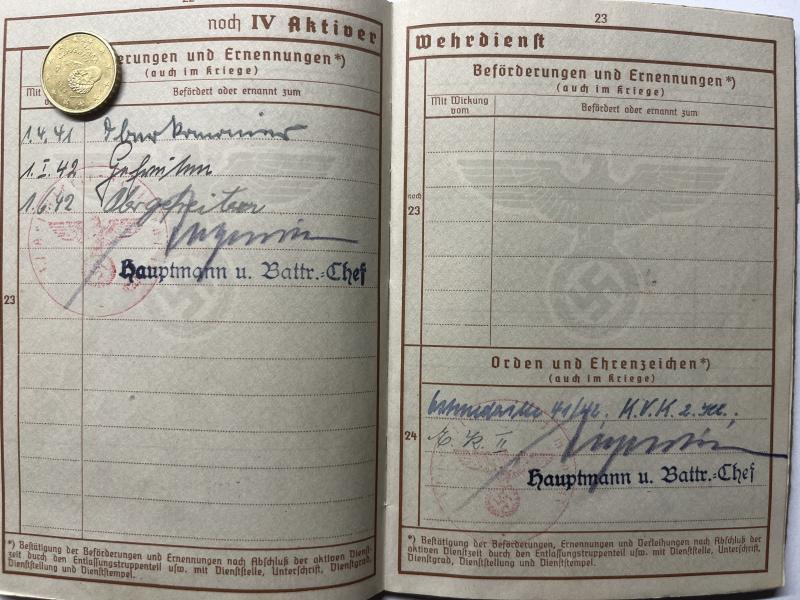 22
noch IV Aktiver
Beförderungen und Ernennungen*)
(auch im Kriege)
Mit
Befördert oder ernannt zum
1.4.41 Oberkanonier
1.I.42 Gefreiten
1.6.42 Obergefreiter
Hauptmann u. Battr.=Chef
23
*) Bestätigung der Beförderungen und Ernennungen nach Abschluß der aktiven Dienst-
zeit durch den Entlassungstruppenteil usw. mit Dienststelle, Unterschrift, Dienstgrad,
Dienststellung und Dienststempel.
23
Wehrdienst
Beförderungen und Ernennungen*)
(auch im Kriege)
Mit Wirkung
vom
Befördert oder ernannt zum
noch
23
Orden und Ehrenzeichen*)
(auch im Kriege)
Ostmedaille 41/42. K.V.K. 2. Kl.
24
E. K. II
Hauptmann u. Battr.=Chef
*) Bestätigung der Beförderungen, Ernennungen und Verleihungen nach Abschluß der
aktiven Dienstzeit durch den Entlassungstruppenteil usw. mit Dienststelle, Unterschrift,
Dienstgrad, Dienststellung und Dienststempel.